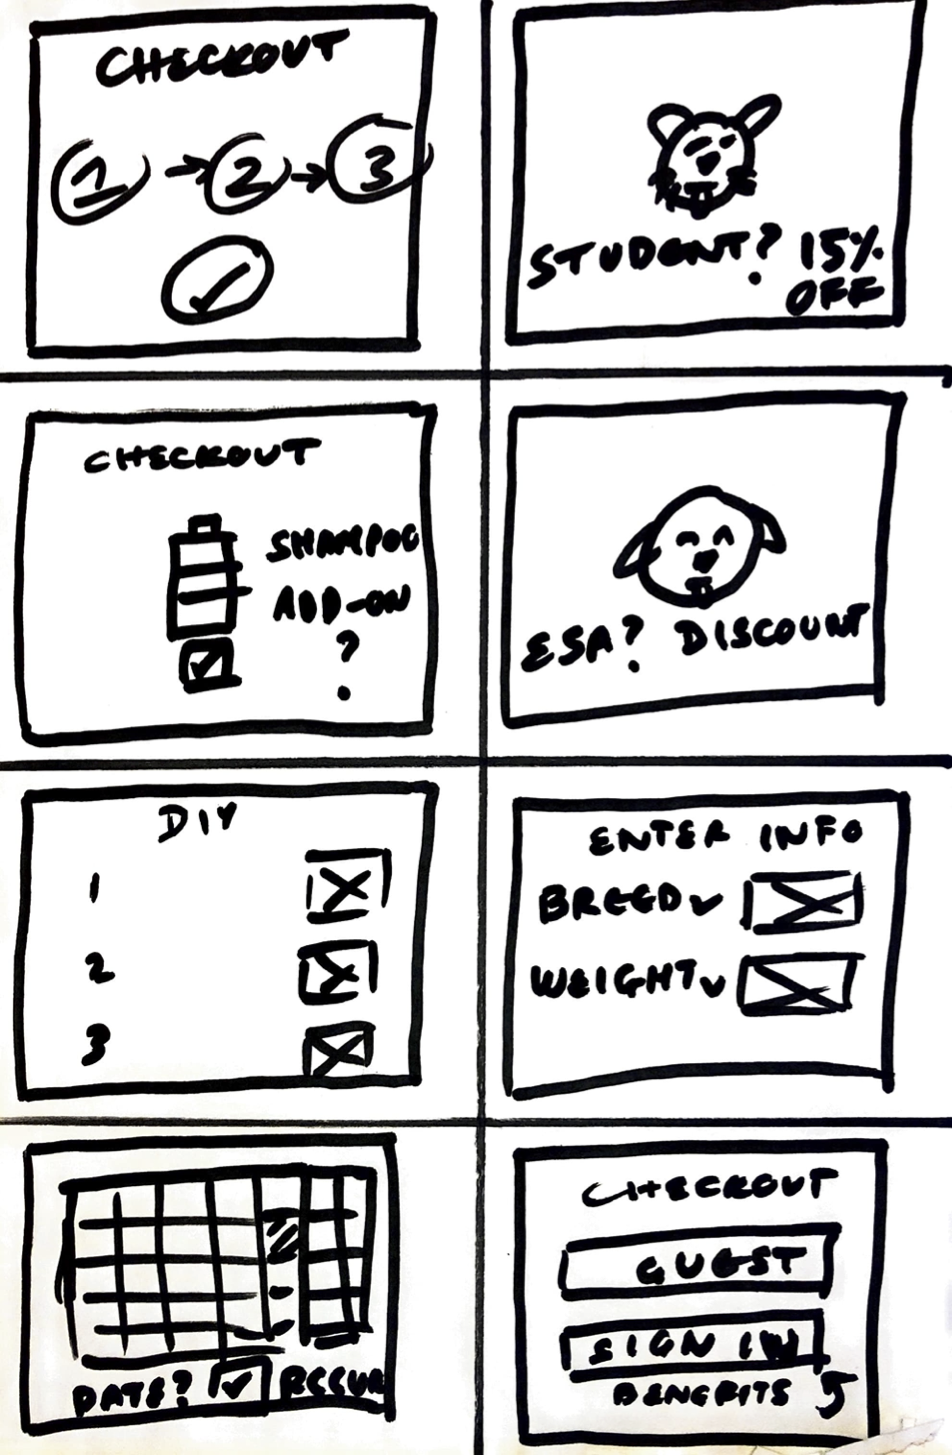 CHECKOUT
1 → 2 → 3
STUDENT? 15%
OFF
CHECKOUT
SHAMPOO
ADD-ON
?
ESA? DISCOUNT
DIY
1
2
3
ENTER INFO
BREED
WEIGHT
DATE? RECUR
CHECKOUT
GUEST
SIGN IN
BENEFITS